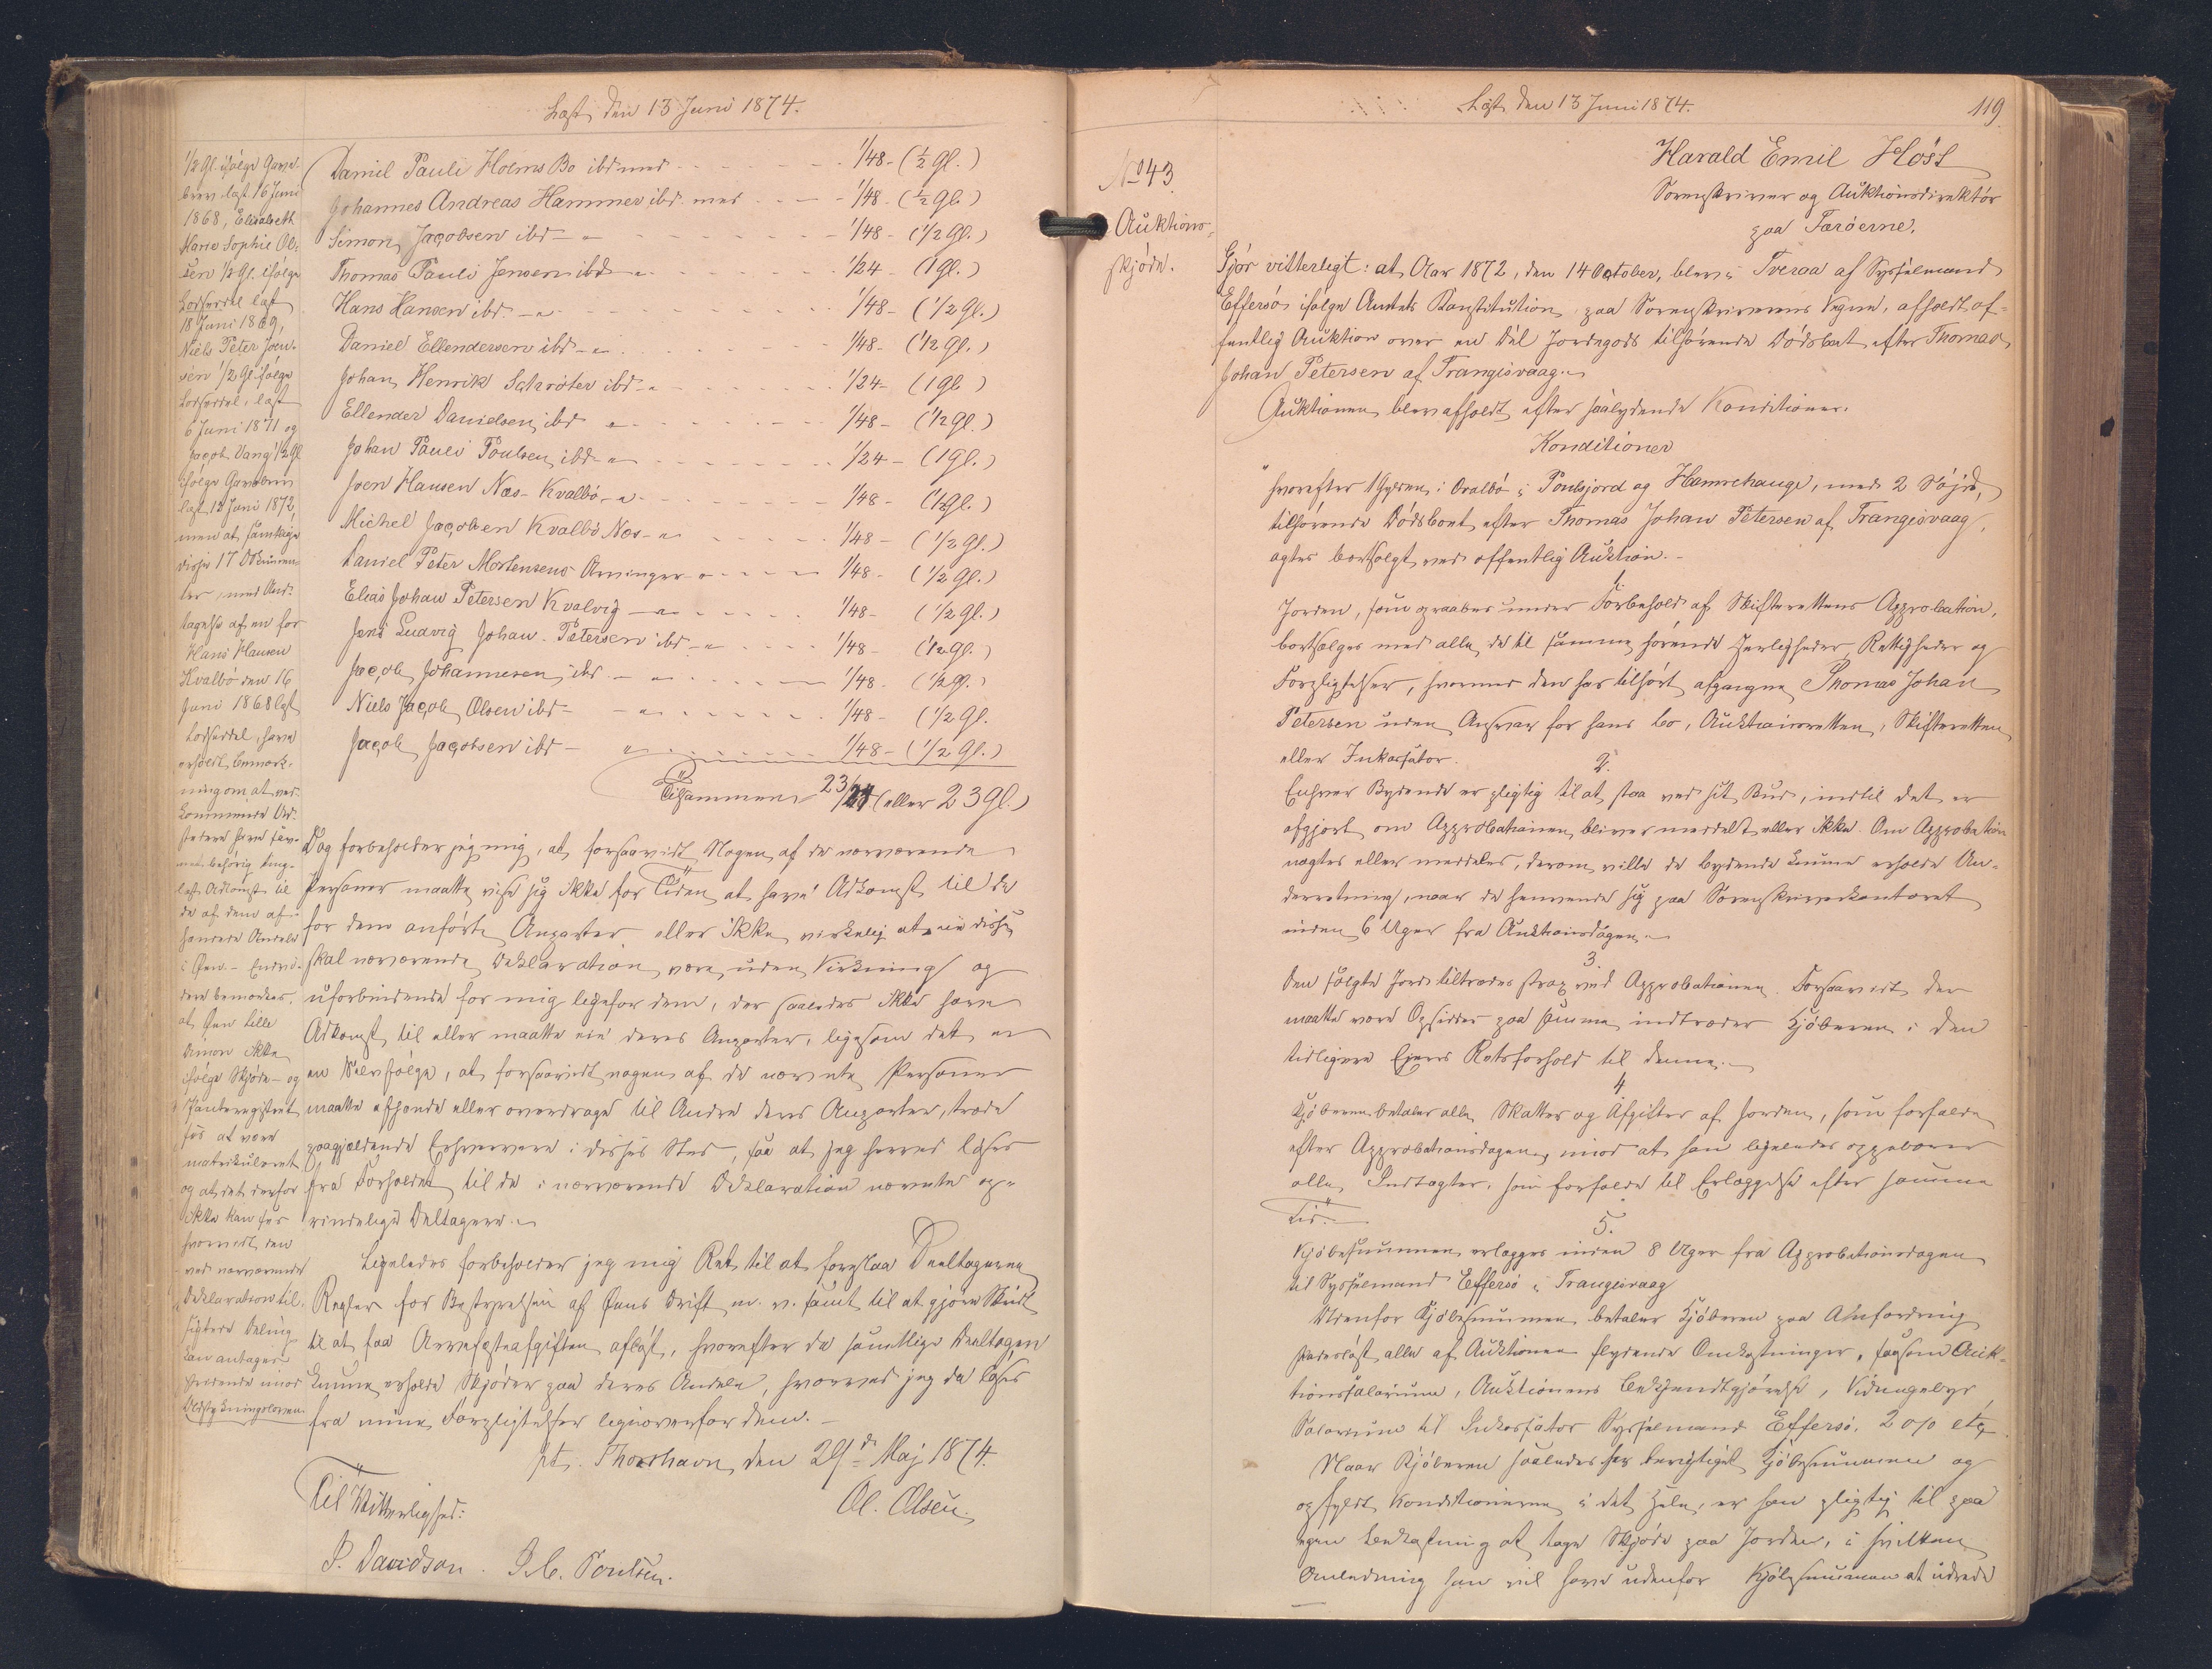 Læst den 13 Juni 1874.
1/2 Gl. ifølge Gave-
brev læst 16 Juni
1868, Elisabeth
Marie Sophie Ol-
sen 1/2 Gl. ifølge
Lodseddel læst
18 Juni 1869,
Niels Peter Joen-
sen 1/2 Gl. ifølge
Lodseddel, læst
6 Juni 1871 og
Jacob Vang 1/2 Gl
ifølge Gavebrev
læst 12 Juni 1872,
men at samtlige
disse 17 Dokumen-
ter, med Und-
tagelse af en for
Hans Hansen
Kvalbø den 16
Juni 1868 læst
Lodseddel, have
erholdt Bemærk-
ning om at ved-
kommende Ud-
stedere have sav-
net behørig ting-
læst Adkomst til
de af dem af-
hændede Andele
i Øen. - Endvi-
dere bemærkes,
at Øen lille
Dimon ikke
ifølge Skjøde- og
Panteregistret
sés at være
matrikuleret
og at det derfor
ikke kan sees
hvorvidt den
ved nærværende
Deklaration til-
sigtede Deling
kan antages
stridende mod
Udstykningsloven.
Daniel Pauli Holms Bo ibd med - - - 1/48 - (1/2 Gl.)
Johannes Andreas Hammer ibd. med - - - 1/48 - (1/2 Gl.)
Simon Jacobsen ibd - " - - - 1/48 - (1/2 Gl.)
Thomas Pauli Jensen ibd - " - - - 1/24 - (1 Gl.)
Hans Hansen ibd. - " - - - 1/48 - (1/2 Gl.)
Daniel Ellendersen ibd - " - - - 1/48 - (1/2 Gl.)
Johan Henrik Schrøter ibd - " - - - 1/24 - (1 Gl.)
Ellender Danielsen ibd " - - - 1/48 - (1/2 Gl.)
Johan Pauli Poulsen ibd - " - - - 1/24 - (1 Gl.)
Joen Hansen Næs - Kvalbø - " - - - 1/48 - (1/2 Gl.)
Michel Jacobsen Kvalbø Næs - " - - - 1/48 - (1/2 Gl.)
Daniel Peter Mortensens Arvinger - " - - - 1/48 - (1/2 Gl.)
Elias Johan Petersen Kvalvig - " - - - 1/48 - (1/2 Gl.)
Jens Ludvig Johan - Petersen ibd - " - - - 1/48 - (1/2 Gl.)
Jacob Johannesen ibd. - " - - - 1/48 - (1/2 Gl.)
Niels Jacob Olsen ibd - " - - - 1/48 - (1/2 Gl.
Jacob Jacobsen ibd - " - - - 1/48 - (1/2 Gl.)
Tilsammen 23/24 (eller 23 Gl.)
Dog forbeholder jeg mig, at, forsaavidt Nogen af de nærværende
Personer maatte vise sig ikke for Tiden at have Adkomst til de
for dem anførte Anparter eller ikke virkelig at eie disse,
skal nærværende Deklaration være uden Virkning og
uforbindende for mig ligefor dem, der saaledes ikke have
Adkomst til eller maatte eie deres Anparter, ligesom det er
en Selvfølge, at, forsaavidt nogen af de nævnte Personer
maatte afhænde eller overdrage til Andre deres Anparter, træde
paagjældende Erhververe i disses Sted, saa at jeg herved løses
fra Forholdet til de i nærværende Deklaration nævnte op-
rindelige Deltagere.
Ligeledes forbeholder jeg mig Ret til at foreslaa Deeltagerne
Regler for Bestyrelsen af Øens Drift m. v. samt til at gjøre Skridt
til at faa Arvefæsteafgiften afløst, hvorefter de samtlige Deeltagere
kunne erholde Skjøder paa deres Andele, hvorved jeg da løses
fra mine Forpligtelser ligeoverfor dem. -
pt. Thorshavn, den 29de Maj 1874.
Ol. Olsen.
Til Vitterlighed:
P. Davidson. P. C. Poulsen.
Læst den 13 Juni 1874.
119
No 43.
Auktions-
skjøde.
Harald Emil Høst
Sorenskriver og Auktionsdirektør
paa Færøerne.
Gjør vitterligt: at Aar 1872, den 14 October, blev i Tveraa af Sysselmand
Effersø ifølge Amtets Konstitution paa Sorenskriverens Vegne, afholdt of-
fentlig Auktion over en Del Jordegods tilhørende Dødsboet efter Thomas
Johan Petersen af Trangisvaag.
Auktionen blev afholdt efter saalydende Konditioner.
Konditioner
" hvorefter 1 Gylden i Ovalbø i Poulsjord og Hamrehauge, med 2 Højde,
tilhørende Dødsboet efter Thomas Johan Petersen af Trangisvaag,
agtes bortsolgt ved offentlig Auktion. -
1.
Jorden, som opraabes under Forbehold af Skifterettens Approbation,
bortsælges med alle de til samme hørende Herligheder, Rettigheder og
Forpligtelser, hvormed den har tilhørt afgangne Thomas Johan
Petersen uden Ansvar for hans Bo, Auktionsretten, Skifteretten
eller Inkassator.
2.
Enhver Bydende er pligtig til at staa ved sit Bud, indtil det er
afgjort om Approbationen bliver meddelt eller ikke. Om Approbation
nægtes eller meddeles, derom ville de bydende kunne erholde Un-
derretning, naar de henvende sig paa Sorenskriverkontoret
inden 6 Uger fra Auktionsdagen.
3
Den solgte Jord tiltrædes strax ved Approbationen. Forsaavidt der
maatte være Opsidder paa samme indtræder Kjøberen i den
tidligere Ejers Retsforhold til denne.
4.
Kjøberen betaler alle Skatter og Afgifter af Jorden, som forfalde
efter Approbationsdagen, imod at han ligeledes oppebærer
alle Indtægter, som forfalde til Erlæggelse efter samme
Tid.
5.
Kjøbesummen erlægges inden 8 Uger fra Approbationsdagen
til Sysselmand Effersø i Trangisvaag
Udenfor Kjøbesummen betaler Kjøberen paa Anfordring
skadesløst alle af Auktionen flydende Omkostninger, saasom Auk-
tionssalarium, Auktionens Bekjendtgjørelse, Vidnegebyr,
Salarium til Inkassator Sysselmand Effersø, 2 o/o etc
Naar Kjøberen saaledes har berigtiget Kjøbesummen og
opfyldt Konditionerne i det Hele, er han pligtig til paa
egen Bekostning at tage Skjøde paa Jorden, i hvilken
Anledning han vil have udenfor Kjøbesummen at udrede